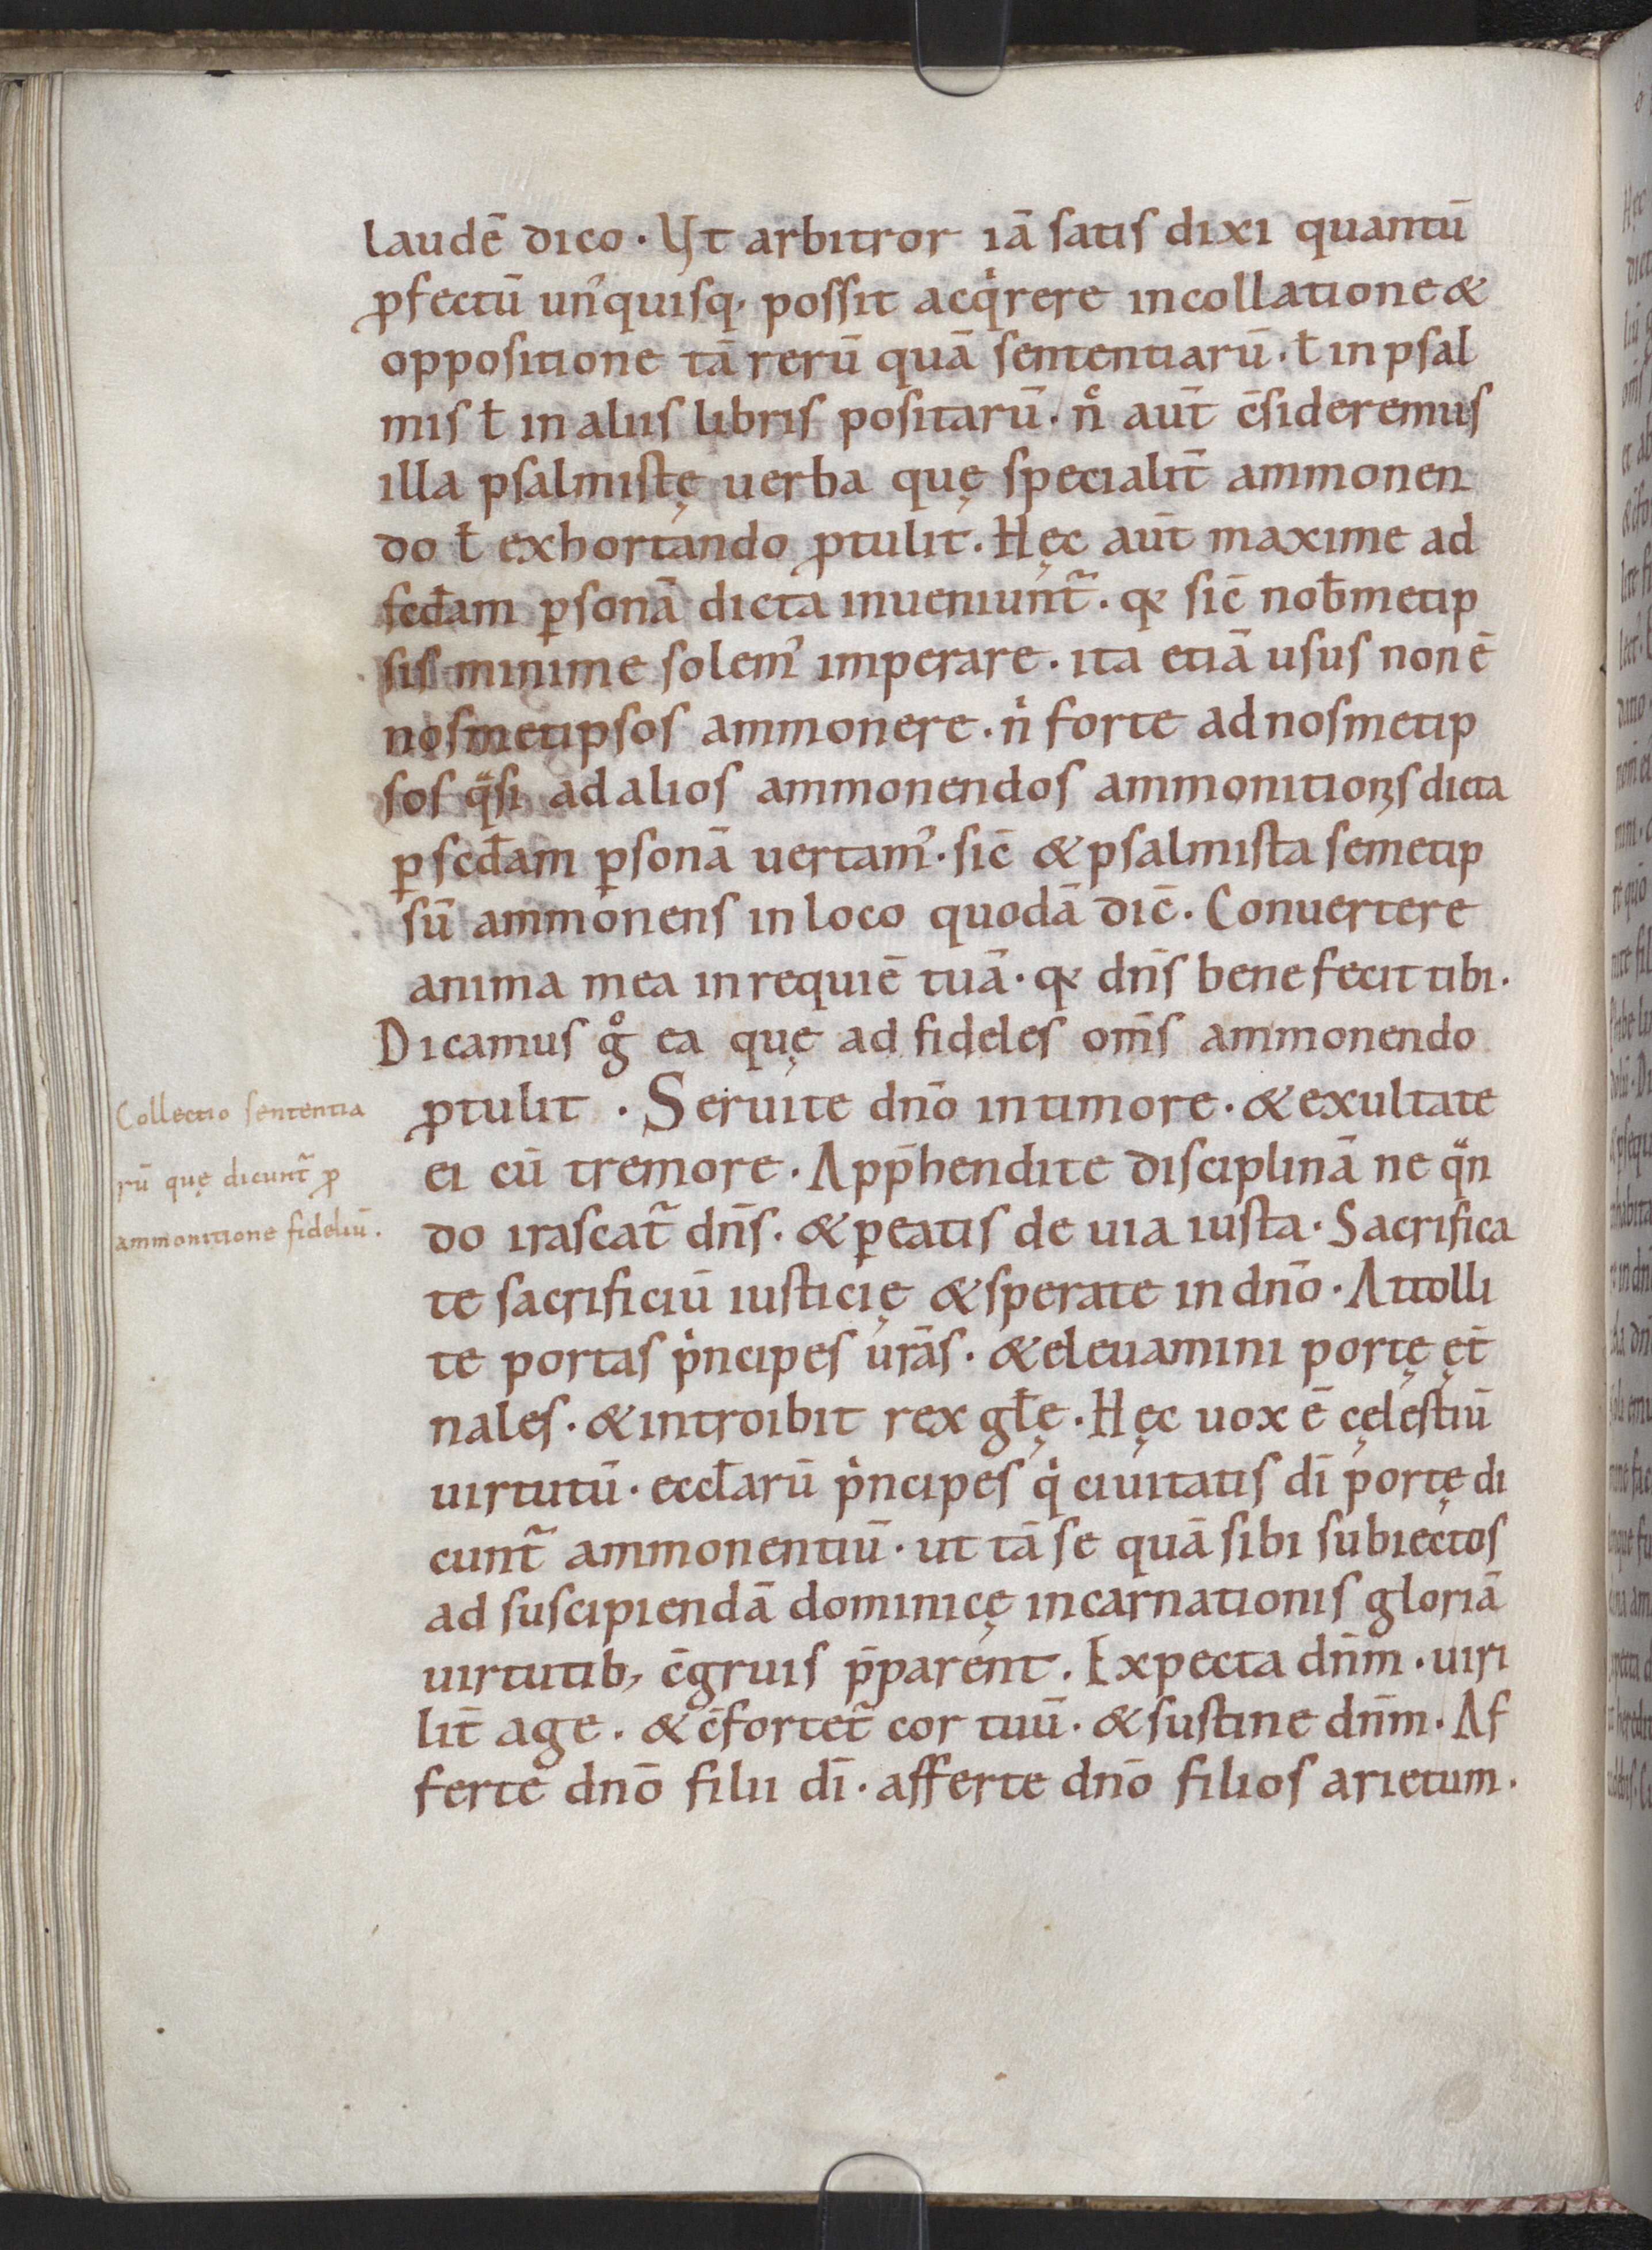 laudē dico · Vt arbitror iā satis dixi quantū
ꝓfectū unꝰquisq; possit acqͥrere in collatione &
oppositione tā rerū quā sententiarū · ł in psal
mis ł in aliis libris positarū · nͦ aut̄ c̄sideremus
illa psalmistę uerba quę specialit̄ ammonen
do ł exhortando ꝓtulit · Hęc aut̄ maxime ad
scđam ꝑsonā dicta inueniunt̃ · qꝛ sic̄ nob̄metip
sis minime solemꝰ imperare · ita etiā usus non ē
nosmetipsos ammonere · nͥ forte ad nosmetip
sos qͣsi ad alios ammonendos ammonitioīs dicta
ꝑ scđam ꝑsonā uertamꝰ · sic̄ & psalmista semetip
sū ammonens in loco quodā dic̄ · Conuertere
anima mea in requiē tuā · qꝛ dn̄s bene fecit tibi ·
Dicamus gͦ ea quę ad fideles om̄s ammonendo
ꝓtulit · Seruite dn̄o in timore · & exultate
ei cū tremore · App̄hendite disciplinā ne qͣn
do irascat̃ dn̄s · & ꝑeatis de uia iusta · Sacrifica
te sacrificiū iusticię & sperate in dn̄o · Attolli
te portas pͥncipes ur̄as · & eleuamini portę ęt̄
nales · & introibit rex głę · Hęc uox ē cęlestiū
uirtutū · eccłarū pͥncipes qͥ ciuitatis dī portę di
cunt̃ ammonentiū · ut tā se quā sibi subiectos
ad suscipiendā dominicę incarnationis gloriā
uirtutib; c̄gruis p̄parent · Expecta dn̄m · uiri
lit̄ age · & c̄fortet̃ cor tuū · & sustine dn̄m · Af
ferte dn̄o filii dī · afferte dn̄o filios arietum ·
Collectio sententia
rū quę dicunt̃ ꝓ
ammonitione fideliū ·